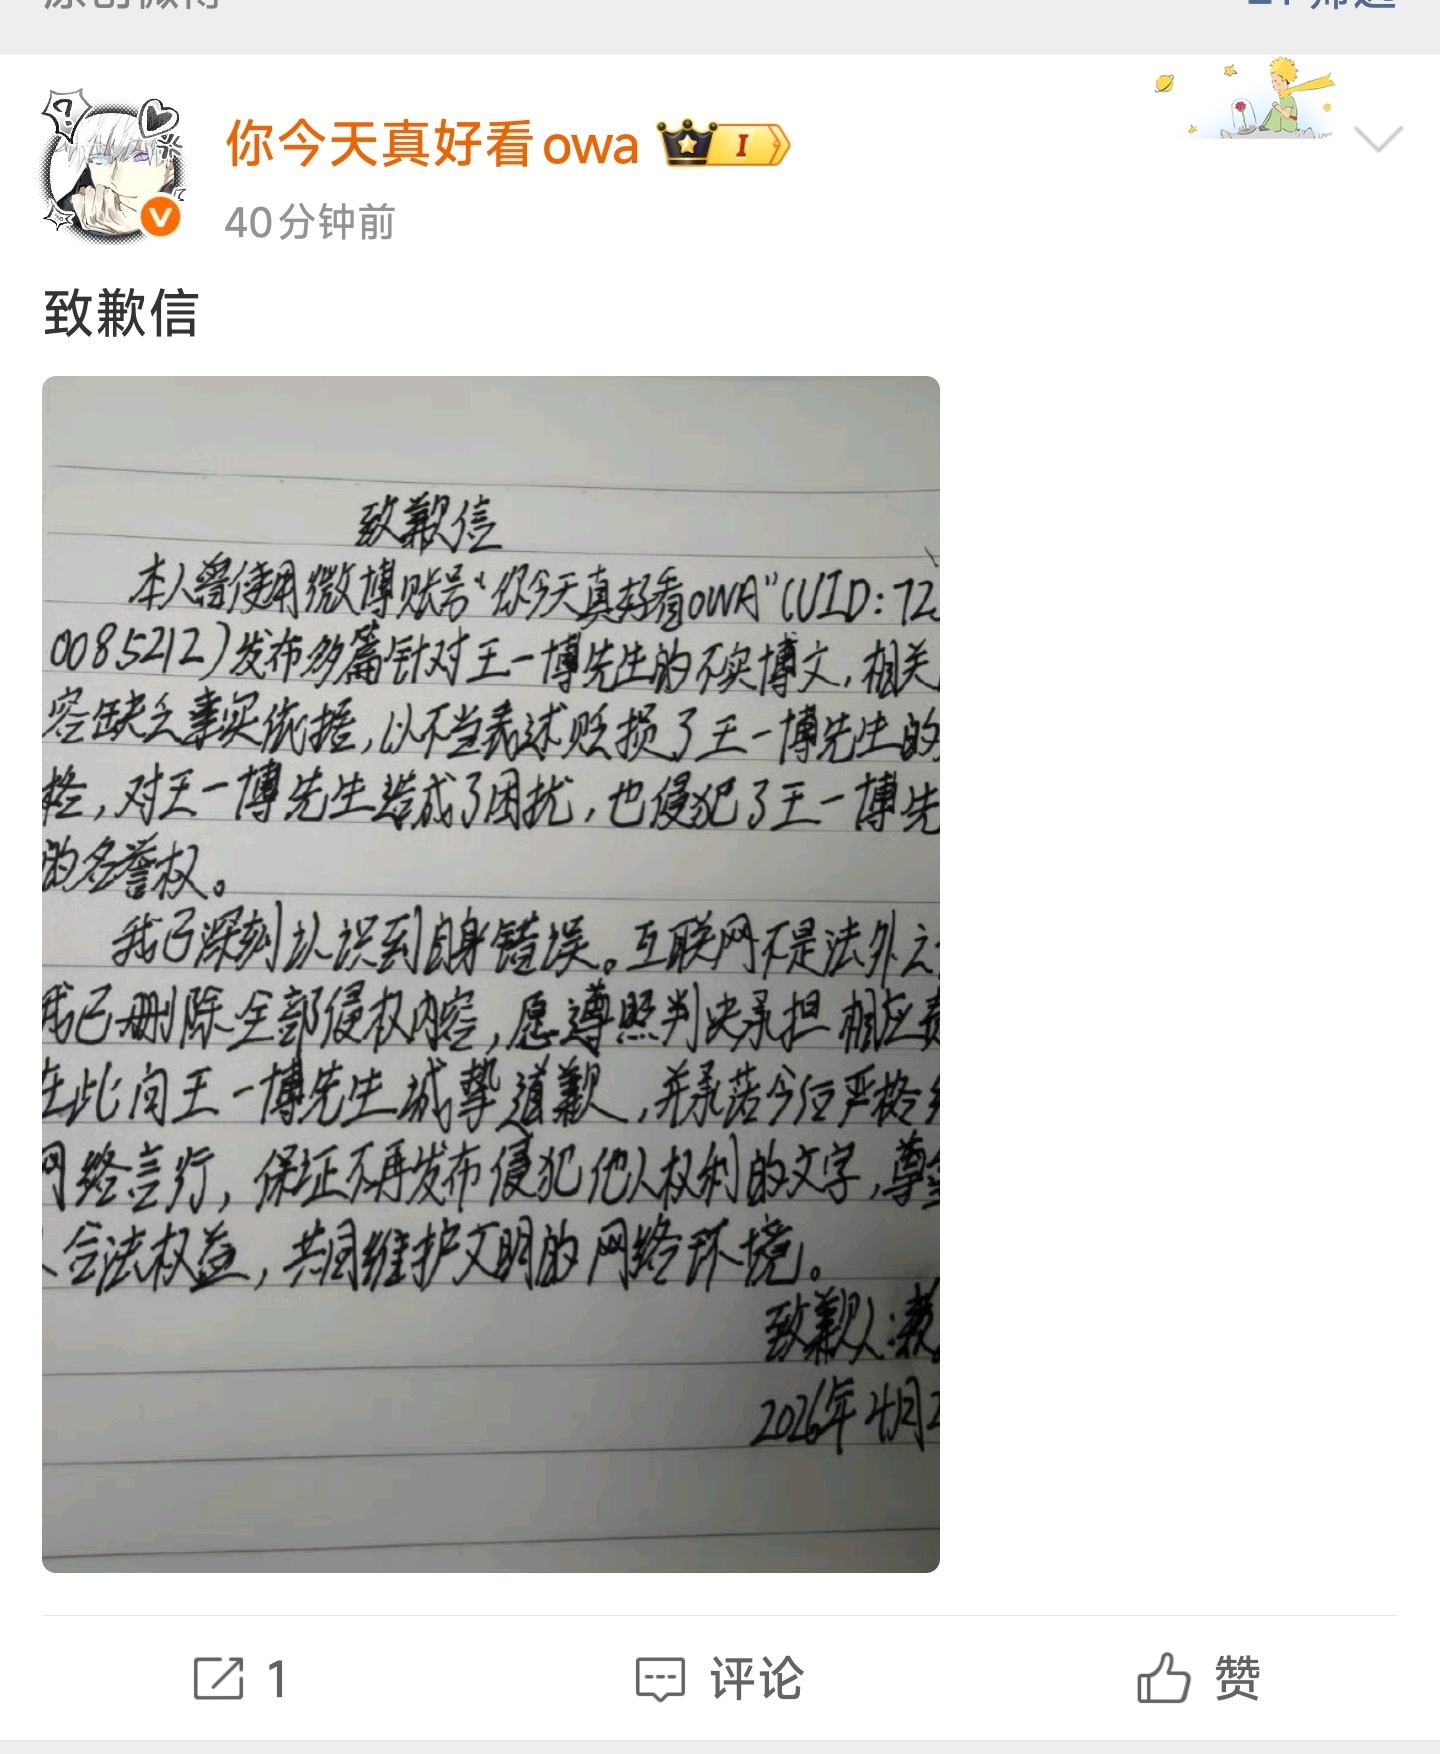 你今天真好看owa
I
40分钟前
致歉信
致歉信
本人曾使用微博账号“你今天真好看owA”(UID:72
0085212)发布多篇针对王一博先生的不实博文,相关
容缺乏事实依据,以不当表述贬损了王一博先生的
格,对王一博先生造成了困扰,也侵犯了王一博先
的名誉权。
我已深刻认识到自身错误。互联网不是法外之
我已删除全部侵权内容,愿遵照判决承担相应责
在此向王一博先生诚挚道歉,并承诺今后严格
网络言行,保证不再发布侵犯他人权利的文字,尊重
人合法权益,共同维护文明的网络环境。
致歉人:
2026年4月2
1
评论
赞